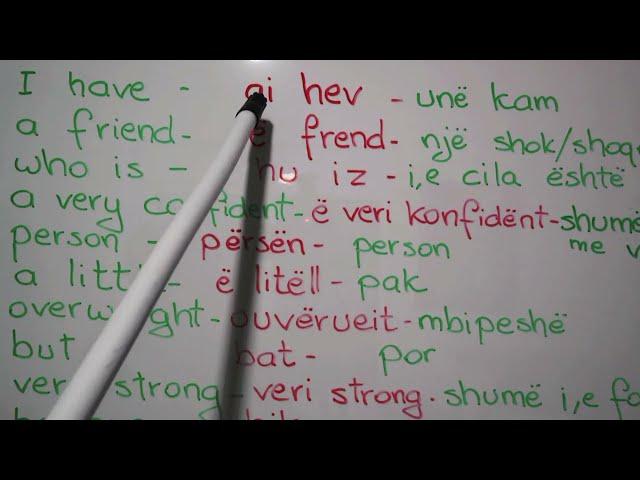 I have - ai hev - unë kam
a friend - ë frend - një shok/shoqe
who is - hu iz - i,e cila është
a very confident - ë veri konfidënt - shumë
person - përsën - person me
a little - ë litëll - pak
overweight - ouvërueit - mbipeshë
but bat - por
very strong - veri strong. shumë i,e